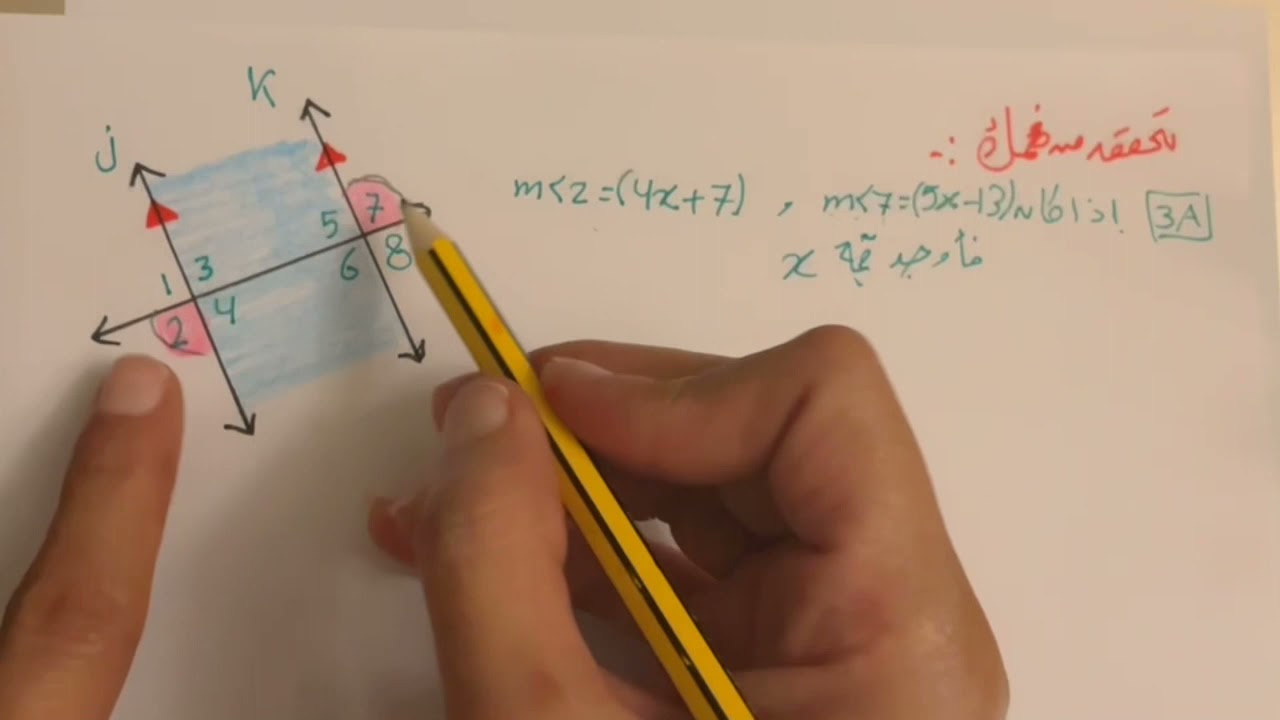 تحقق من فهمك :-
3A إذا كان m<7=(5x-13) , m<2=(4x+7)
فأوجد قيمة x
K
j
5 7
6 8
1 3
2 4